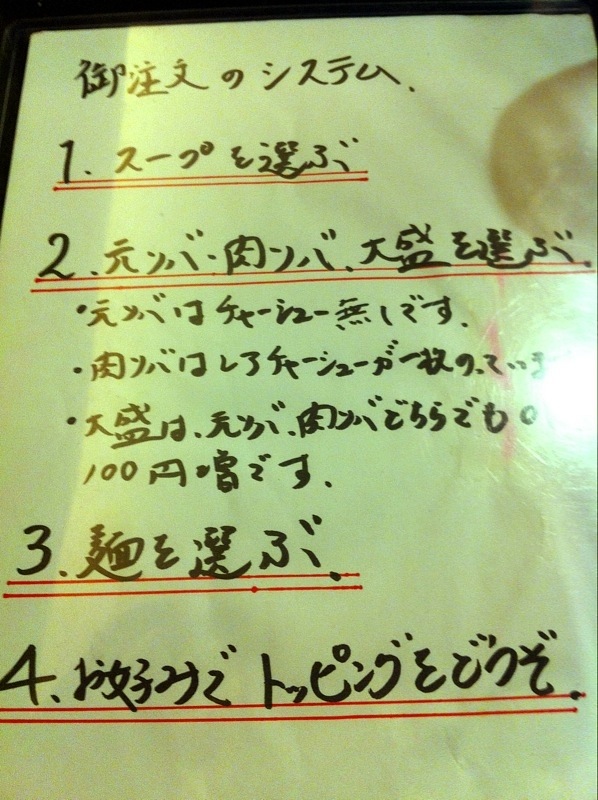 御注文のシステム.
1. スープを選ぶ
2. 元ソバ・肉ソバ、大盛を選ぶ.
・元ソバはチャーシュー無しです.
・肉ソバはレアチャーシューが一枚のっていま
・大盛は、元ソバ、肉ソバどちらでも
100円増です.
3. 麺を選ぶ.
4. お好みでトッピングをどうぞ.